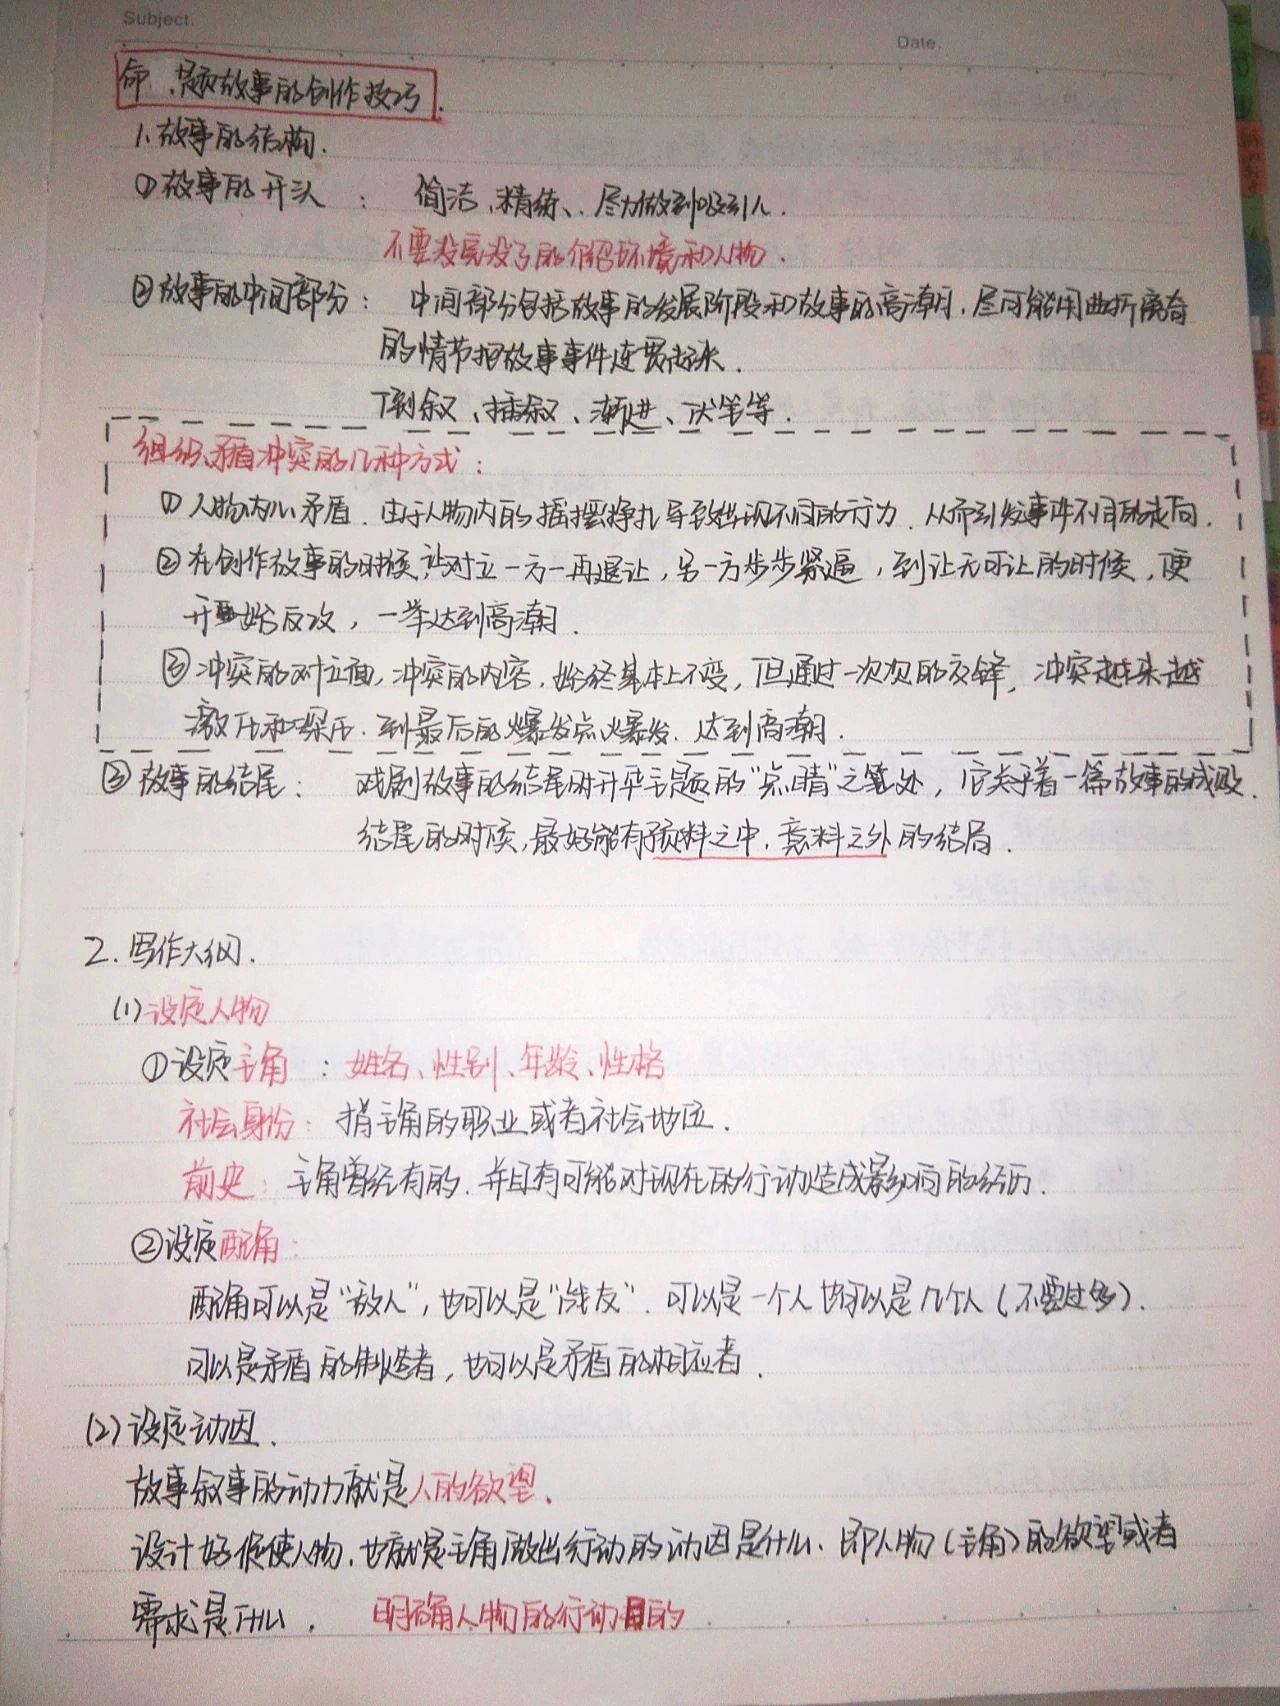 Subject.
Date.
命题故事的创作技巧.
1.故事的结构.
①故事的开头: 简洁、精练、尽力做到吸引人.
不要没完没了的介绍环境和人物.
②故事的中间部分: 中间部分包括故事的发展阶段和故事的高潮.尽可能用曲折离奇
的情节把故事事件连贯起来.
倒叙、插叙、渐进、伏笔等.
组织矛盾冲突的几种方式:
①人物内心矛盾.由于人物内的摇摆挣扎导致出现不同的行为.从而引发事件不同的走向.
②在创作故事的时候,让对立一方一再退让,另一方步步紧逼,到让无可让的时候,便
开始反攻,一举达到高潮.
③冲突的对立面,冲突的内容,始终基本上不变,但通过一次次的交锋,冲突越来越
激化和深化.到最后的爆发点爆发.达到高潮.
③故事的结尾: 戏剧故事的结尾时升华主题的“点睛”之笔处,它关乎着一篇故事的成败.
结尾的时候,最好能有预料之中,意料之外的结局.
2.写作大纲.
(1)设定人物
①设定主角:姓名、性别、年龄、性格
社会身份:指主角的职业或者社会地位.
前史:主角曾经有的.并且有可能对现在的行动造成影响的经历.
②设定配角:
配角可以是“敌人”,也可以是“战友”.可以是一个人也可以是几个人(不要过多).
可以是矛盾的制造者,也可以是矛盾的相应者.
(2)设定动因.
故事叙事的动力就是人的欲望.
设计好促使人物,也就是主角做出行动的动因是什么.即人物(主角)的欲望或者
需求是什么. 明确人物的行动目的.